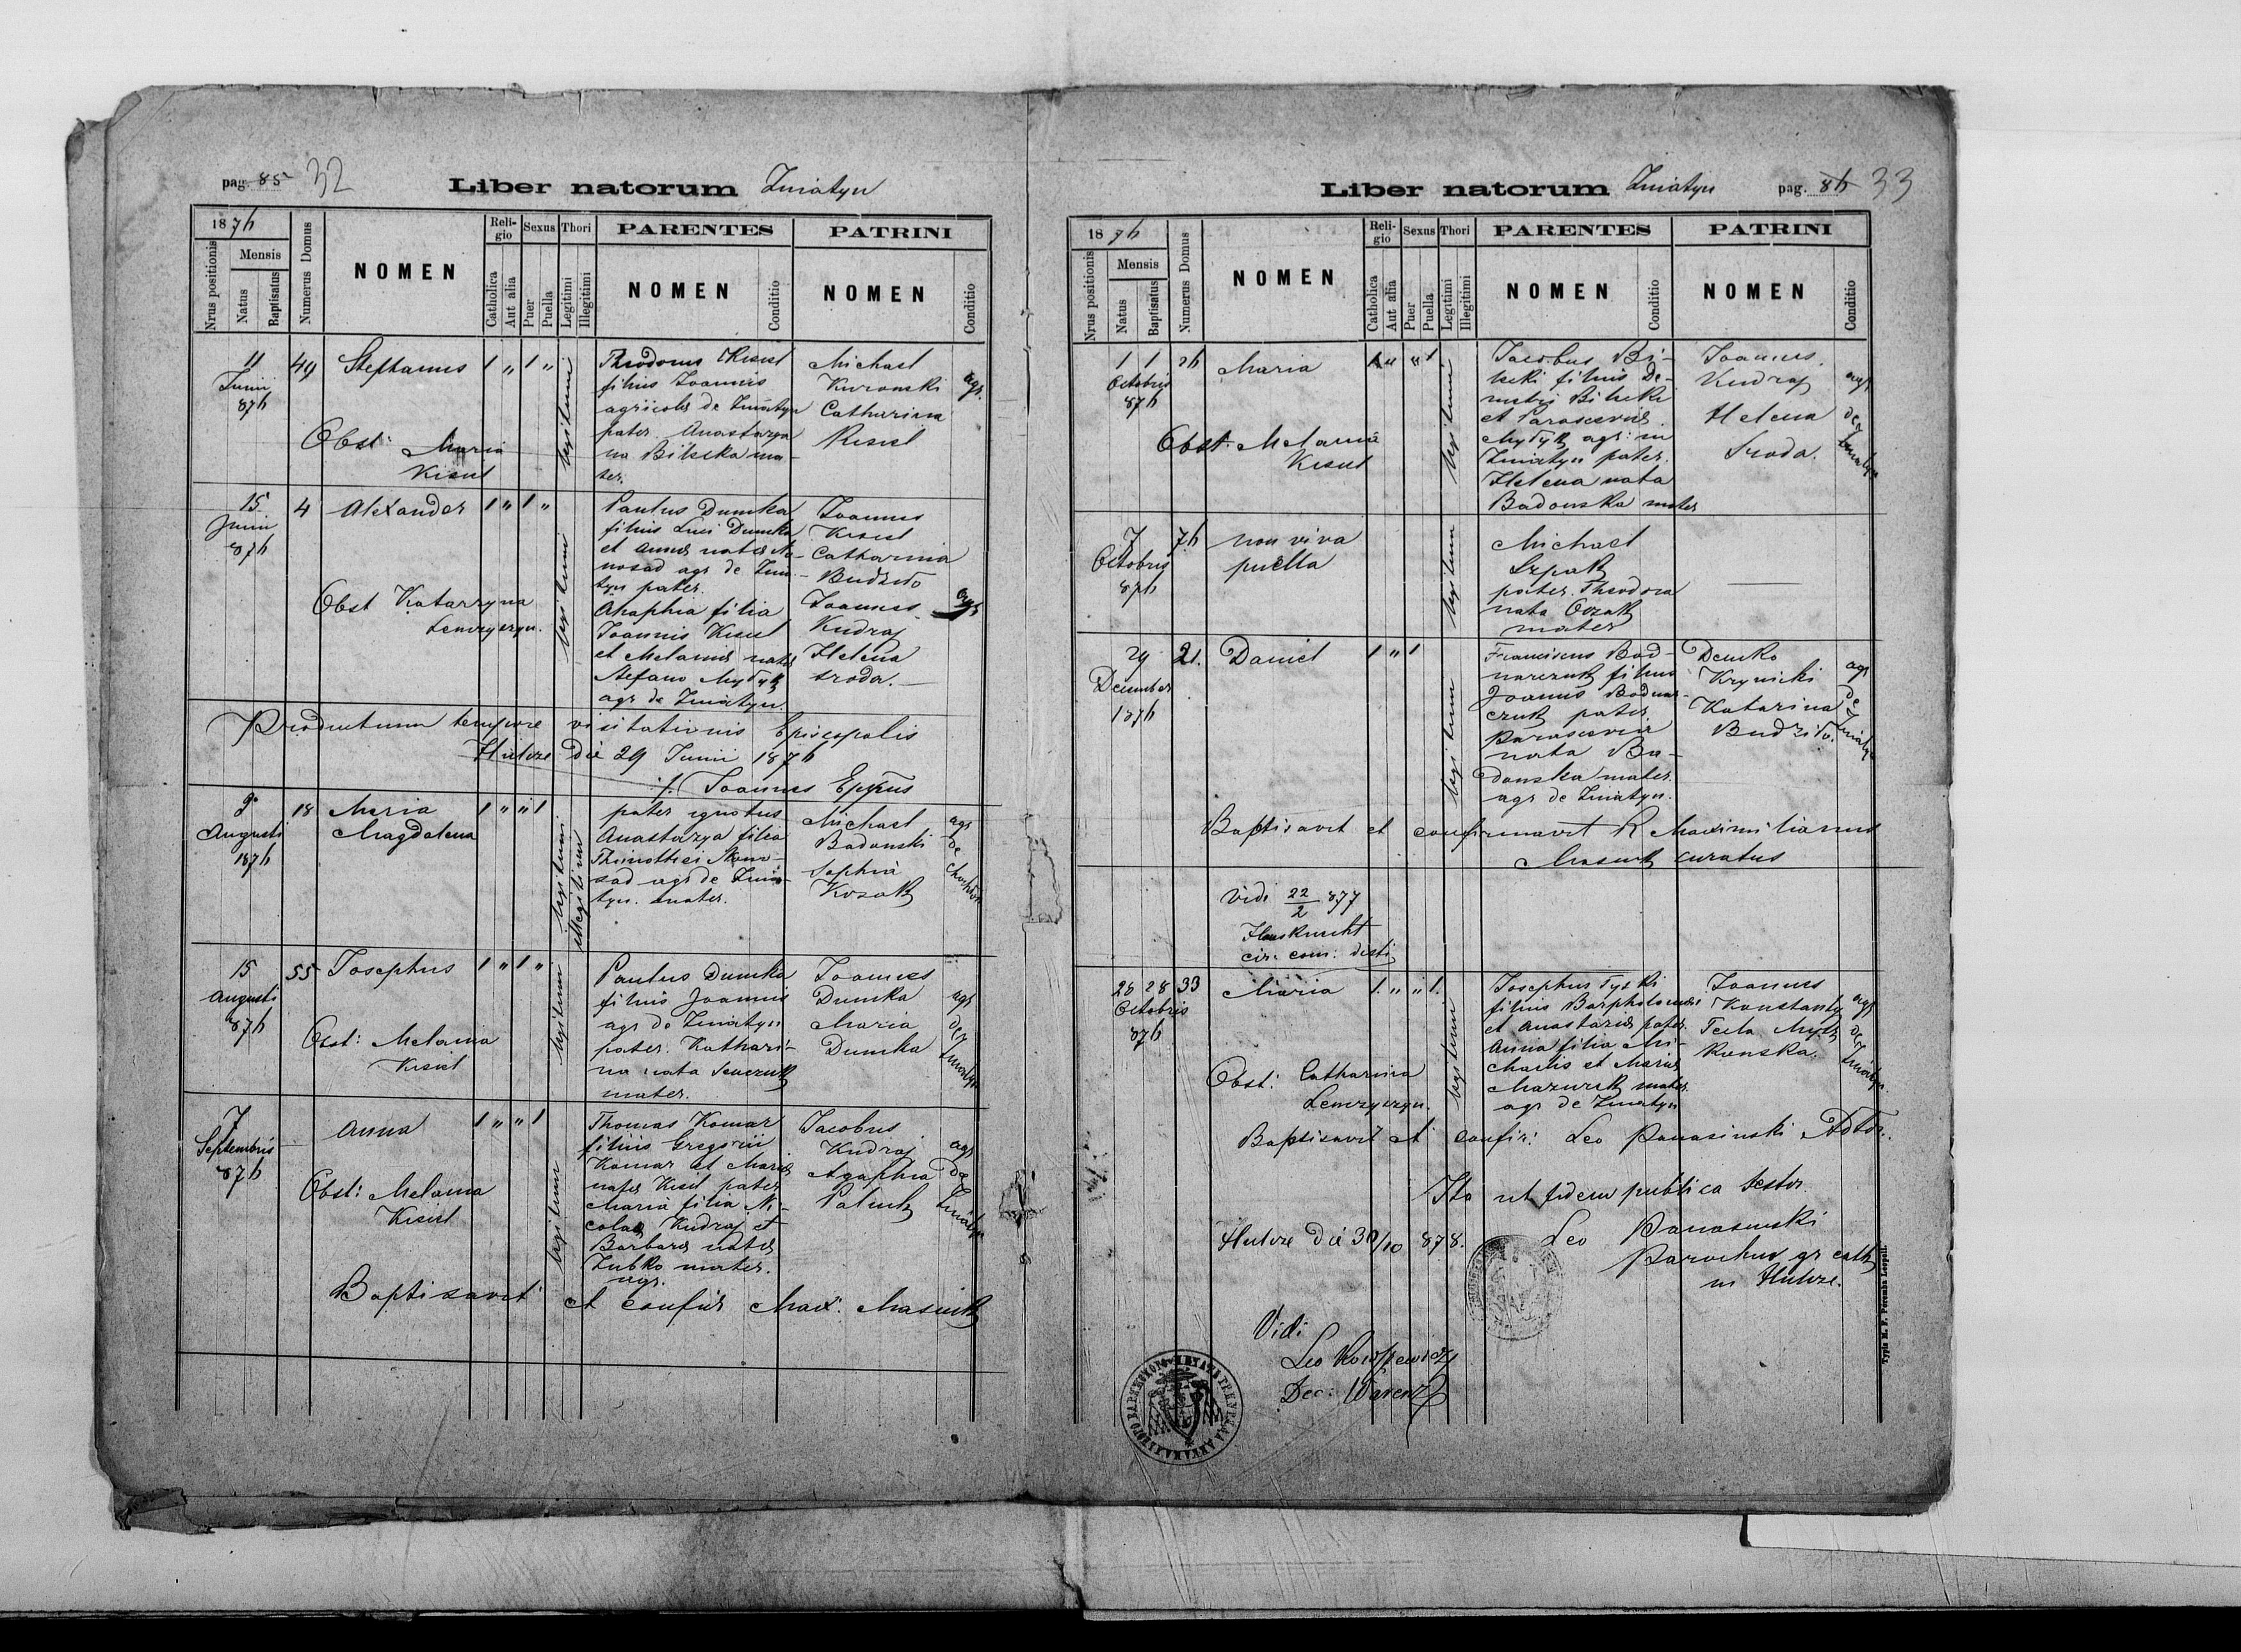 pag. 85 32
Liber natorum Żniatyn
1876
Nrus positionis
Mensis
Natus
Baptisatus
Numerus Domus
NOMEN
Religio
Catholica
Aut alia
Sexus
Puer
Puella
Thori
Legitimi
Illegitimi
PARENTES
NOMEN
Conditio
PATRINI
NOMEN
Conditio
11
Junii
876
49
Stephanus
1 " 1 "
legitimi
Obst: Maria
Kisiel
Theodorus Kisiel
filius Joannis
agricola de Żniatyn
pater. Anastazya
na Bilecka ma-
ter.
Michael
Kuronski
Catharina
Kisiel
agr.
15
Junii
876
4
Alexander
1 " 1 "
legitimi
Obst Katarzyna
Lenczyczyn.
Paulus Dumka
filius Luci Dumka
et Annæ natæ No-
nosad agr de Żnia-
tyn pater.
Ahaphia filia
Joannis Kisiel
et Melaniæ natæ
Stefano Mytyk
agr de Żniatyn.
Joannes
Kisiel
Catharina
Budziło
Joannes
Kudraj
Helena
Sroda.
agr
Productum tempore visitationis Episcopalis
Hulcze die 29 Junii 1876
Joannes Eppus
9
Augusti
1876
18
Maria
Magdalena
1 " " 1
legitimi
illegitimi
pater ignotus
Anastazya filia
Thimothei Nowo-
sad agr de Żnia-
tyn. mater.
Michael
Badowski
Sophia
Kozak
agr
de
15
Augusti
876
55
Josephus
1 " 1 "
legitimi
Obst: Melania
Kisiel
Paulus Dumka
filius Joannis
agr de Żniatyn
pater. Kathari-
na nata Senczuk
mater.
Joannes
Dumka
Maria
Dumka
agr
de
Żniatyn
7
Septembris
876
Anna
1 " " 1
legitimum
Obst: Melania
Kisiel
Thomas Komar
filius Gregorii
Komar et Mariæ
natæ Kisil pater
Maria filia Ni-
colai Kudraj et
Barbaræ natæ
Zubko mater.
agr.
Jacobus
Kudraj
Agaphia
Paluch
agr
de
Żniatyn
Baptisavit et confir Max. Masiuk
Liber natorum Żniatyn
pag. 86 33
1876
Nrus positionis
Mensis
Natus
Baptisatus
Numerus Domus
NOMEN
Religio
Catholica
Aut alia
Sexus
Puer
Puella
Thori
Legitimi
Illegitimi
PARENTES
NOMEN
Conditio
PATRINI
NOMEN
Conditio
1 1
Octobris
876
26
Maria
1 " " 1
legitimum
Obst. Melania
Kisiel
Jacobus Bi-
lecki filius De-
metri Bilecki
et Parasceviæ
Mytyk agr: in
Żniatyn pater.
Helena nata
Badowska mater
Joannes
Kudraj
Helena
Sroda.
agr
de
Żniatyn
7
Octobris
876
76
non viva
puella
legitimum
Michael
Szpak
pater. Theodora
nata Kozak
mater
29
December
1876
21.
Daniel
1 " 1
legitimum
Franciscus Bod-
narczuk filius
Joannis Bodnar-
czuk pater.
Parascevia
nata Ba-
dowska mater.
agr de Żniatyn.
Demko
Krynicki
Katarina
Budziło.
agr
de
Żniatyn
Baptisavit et confirmavit R Maximilianus
Masiuk curatus
Vidi 22/2 877
Hausknecht
cir: com: disti
28 28
Octobris
876
33
Maria
1. " " 1.
legitimum
Obst: Catharina
Lenczyczyn.
Josephus Tycki
filius Barpholomei
et Anastaziæ pater.
Anna filia Mi-
chaelis et Mariæ
Mazurek mater.
agr de Żniatyn
Joannes
Konstanty
Tecla
agr
de
Żniatyn.
Baptisavit et confir: Leo Panasinski Adtor.
Ita ut fidem publica testor
Hulcze die 30/10 878.
Leo Panasinski
Parochus gr cath
in Hulcze.
Vidi
Dec:
Typis K. F. Poremba Leopoli.